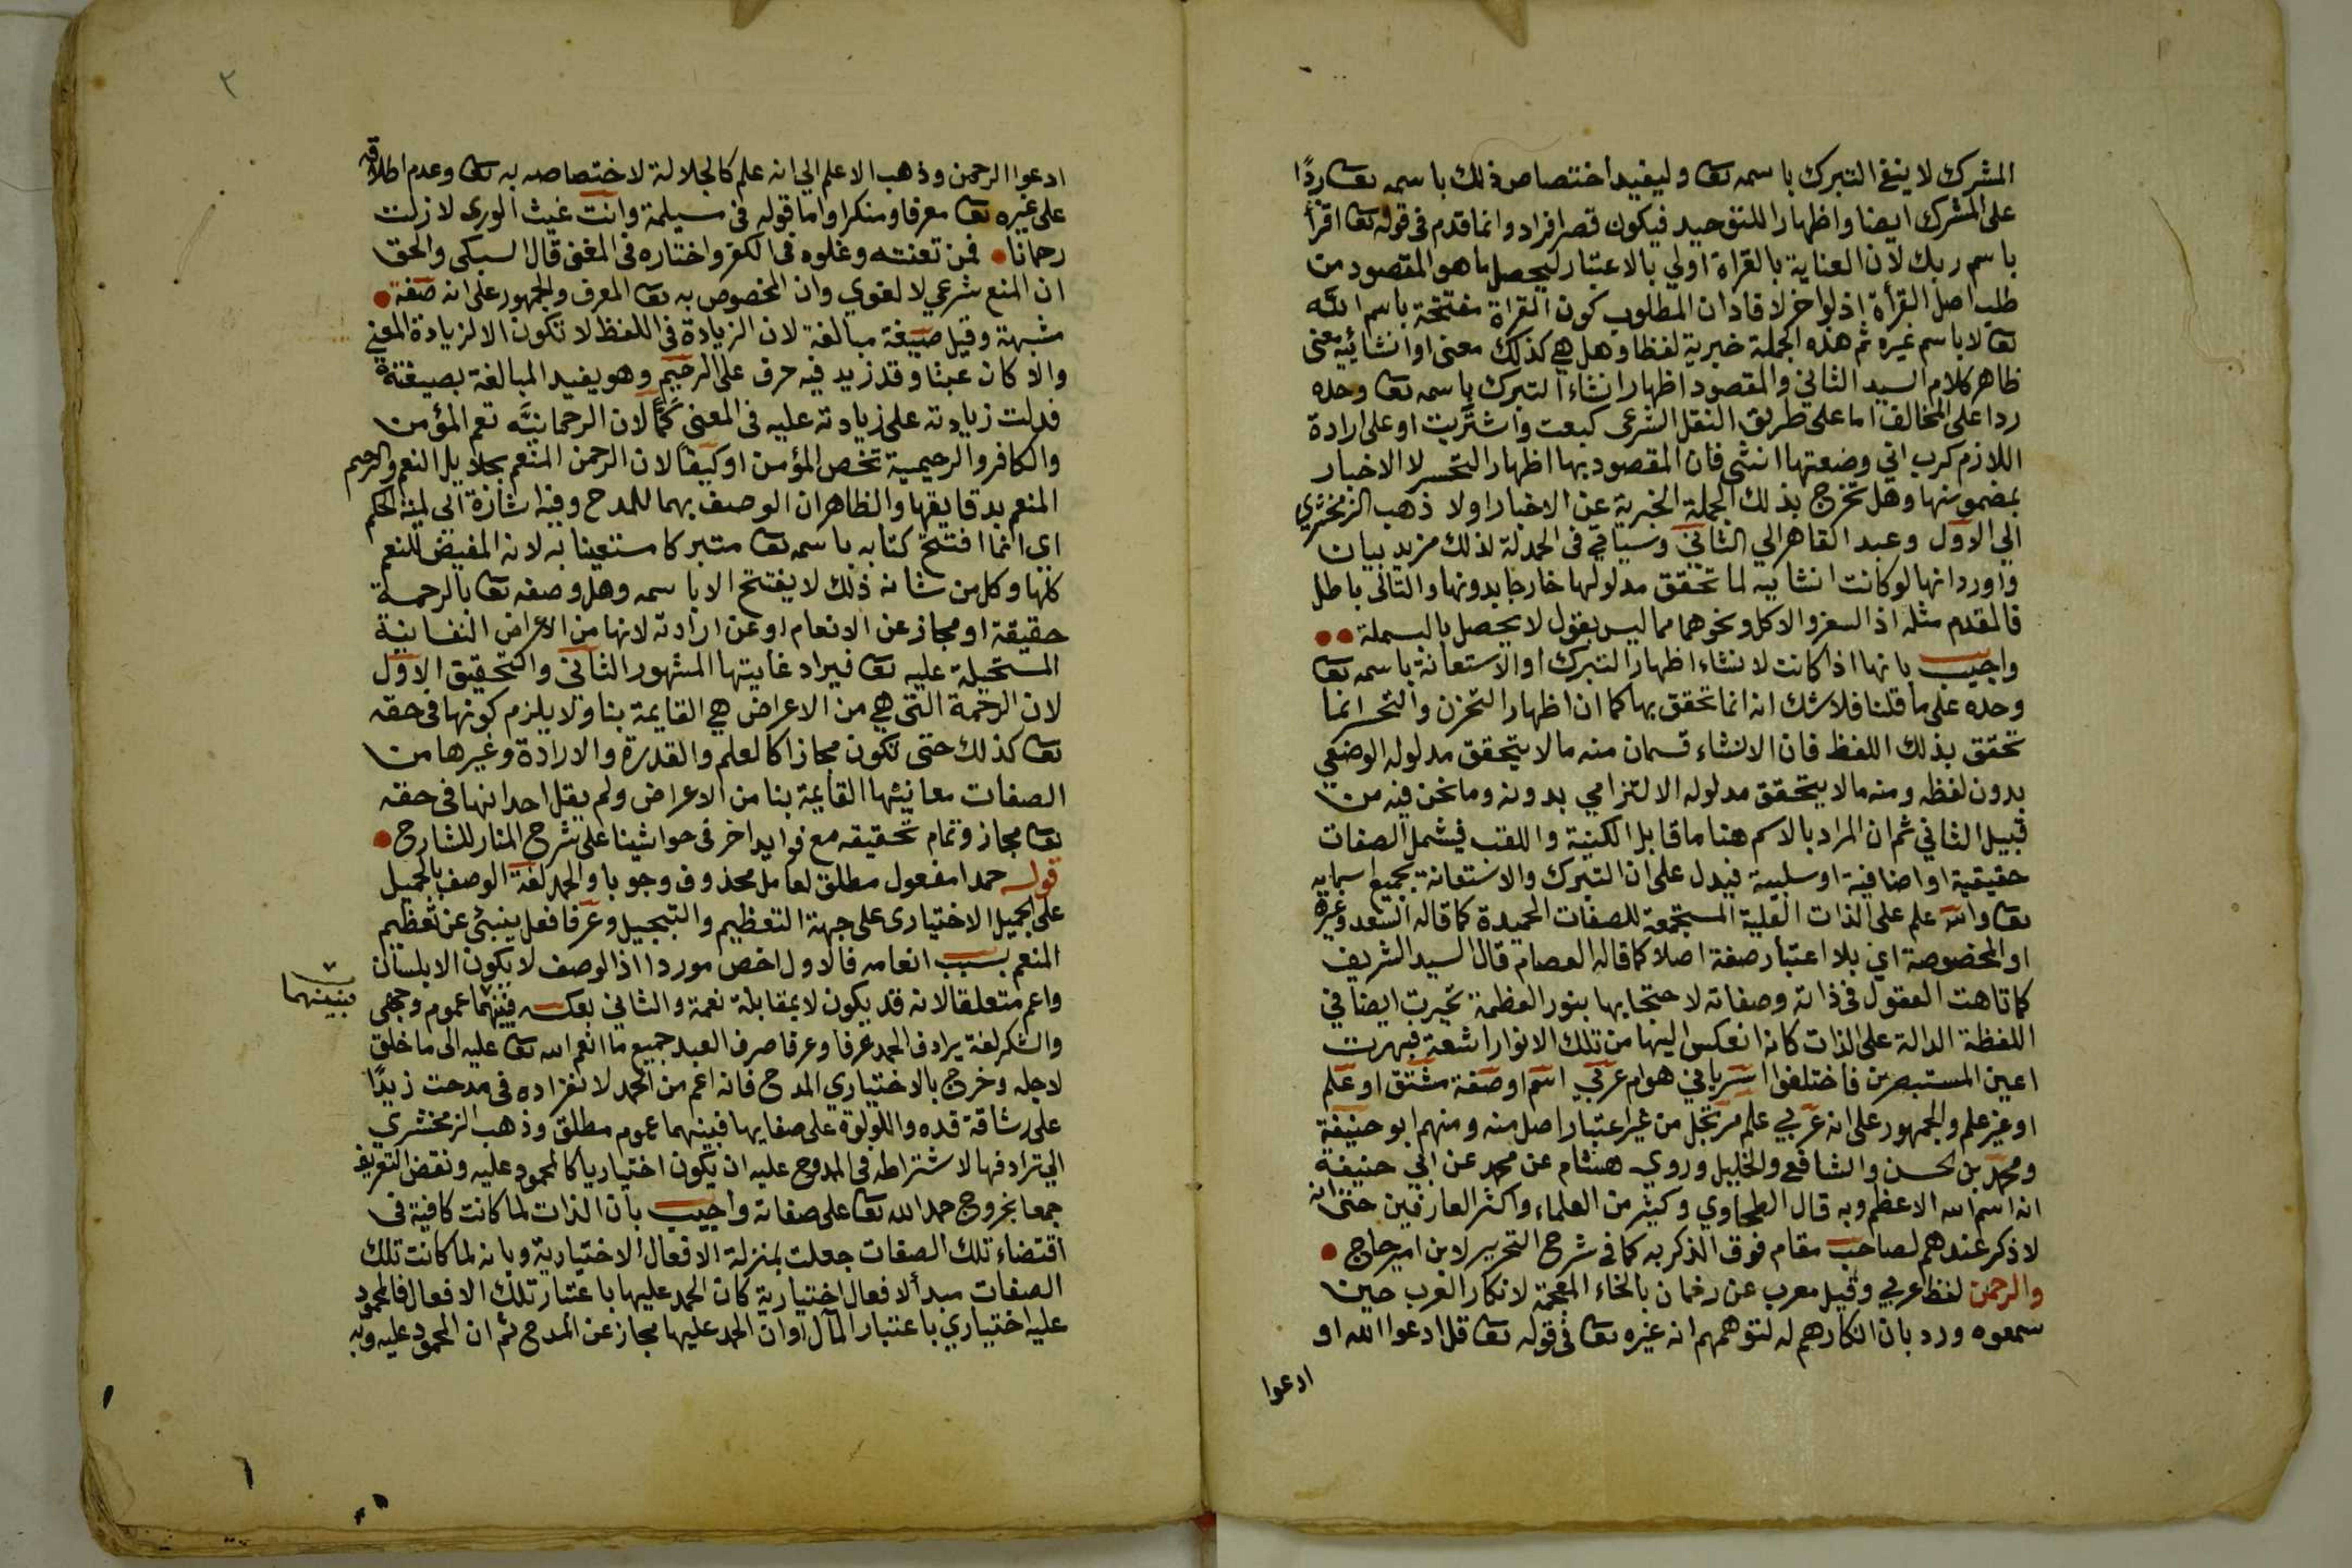 المشرك لا ينفي التبرك باسمه تعا وليفيد اختصاص ذلك باسمه تعا ردًا
على المشرك ايضا واظهارا للتوحيد فيكون قصر افراد وانما قدم في قوله تعا اقرأ
باسم ربك لان العناية بالقراة اولي بالاعتبار ليحصل ما هو المقصود من
طلب اصل القرأة اذ لو اخر لافاد ان المطلوب كون القراة مفتتحة باسم الله
تعا لا باسم غيره ثم هذه الجملة خبرية لفظا وهل هي كذلك معنى او انشائية معنى
ظاهر كلام السيد الثاني والمقصود اظهار انشاء التبرك باسمه تعا وحده
ردا على المخالف اما على طريق النقل الشرعي كبعت واشتريت او على ارادة
اللازم كرب اني وضعتها انثى فان المقصود بها اظهار التحسر لا الاخبار
بمضمونها وهل تخرج بذلك الجملة الخبرية عن الاخبار اولا ذهب الزمخشري
الي الاول وعبد القاهر الي الثاني وسياتي في الحمدلة لذلك مزيد بيان
واورد انها لو كانت انشائيه لما تحقق مدلولها خارجا بدونها والتالى باطل
فالمقدم مثله اذ السفر والاكل ونحوهما مما ليس بقول لا يحصل بالبسملة
واجيب بانها اذا كانت لانشاء اظهار التبرك او الاستعانة باسمه تعا
وحده على ما قلنا فلا شك انه انما تحقق بها كما ان اظهار التحزن والتحسر انما
تحقق بذلك اللفظ فان الانشاء قسمان منه ما لا يتحقق مدلوله الوضعي
بدون لفظه ومنه ما لا يتحقق مدلوله الالتزامي بدونه وما نحن فيه من
قبيل الثاني ثم ان المراد بالاسم هنا ما قابل الكنية واللقب فيشمل الصفات
حقيقية او اضافية او سلبية فيدل على ان التبرك والاستعانة بجميع اسمايه
تعا والله علم على الذات العلية المستجمعة للصفات الحميدة كما قاله السعد وغيره
او المخصوصة اي بلا اعتبار صفة اصلا كما قاله العصام قال السيد الشريف
كما تاهت العقول في ذاته وصفاته لاحتجابها بنور العظمة تحيرت ايضا في
اللفظة الدالة على الذات كانه انعكس اليها من تلك الانوار اشعة فبهرت
اعين المستبصرين فاختلفوا اسرياني هو ام عربي اسم او صفة مشتق او علم
او غير علم والجمهور على انه عربي علم مرتجل من غير اعتبار اصل منه ومنهم ابو حنيفة
ومحمد بن الحسن والشافعي والخليل وروي هشام عن محمد عن ابي حنيفة
انه اسم الله الاعظم وبه قال الطحاوي وكثير من العلماء واكثر العارفين حتى انه
لا ذكر عندهم لصاحب مقام فوق الذكر به كما في شرح التحرير لابن امير حاج
والرحمن لفظ عربي وقيل معرب عن رخمان بالخاء المعجمة لانكار العرب حين
سمعوه ورد بان انكارهم له لتوهمهم انه غيره تعا في قوله تعا قل ادعوا الله او
ادعوا
٢
ادعوا الرحمن وذهب الاعلم الي انه علم كالجلالة لاختصاصه به تعا وعدم اطلاقه
على غيره تعا معرفا ومنكرا واما قوله في مسيلمة وانت غيث الورى لا زلت
رحمانا فمن تعنته وغلوه في الكفر واختاره في المغنى قال السبكى والحق
ان المنع شرعي لا لغوي وان المخصوص به تعا المعرف والجمهور على انه صفة
مشبهة وقيل صيغة مبالغة لان الزيادة في اللفظ لا تكون الا لزيادة المعنى
والا كان عبثا وقد زيد فيه حرف على الرحيم وهو يفيد المبالغة بصيغته
فدلت زيادته على زيادته عليه في المعنى كمًّا لان الرحمانيَّه تعم المؤمن
والكافر والرحيمية تخص المؤمن او كيفا لان الرحمن المنعم بجلايل النعم والرحيم
المنعم بدقايقها والظاهر ان الوصف بهما للمدح وفيه اشارة الى لمية الحكم
اي انما افتتح كتابه باسمه تعا متبركا مستعينا به لانه المفيض للنعم
كلها وكل من شانه ذلك لا يفتتح الا باسمه وهل وصفه تعا بالرحمة
حقيقة او مجاز عن الانعام او عن ارادته لانها من الاعراض النفسانية
المستحيلة عليه تعا فيراد غايتها المشهور الثاني والتحقيق الاول
لان الرحمة التي هي من الاعراض هي القايمة بنا ولا يلزم كونها في حقه
تعا كذلك حتى تكون مجازا كالعلم والقدرة والارادة وغيرها من
الصفات معانيها القايمة بنا من الاعراض ولم يقل احد انها في حقه
تعا مجاز وتمام تحقيقه مع فوايد اخر في حواشينا على شرح المنار للشارح
قوله حمدا مفعول مطلق لعامل محذوف وجوبا والحمد لغة الوصف بالجميل
على الجميل الاختيارى على جهة التعظيم والتبجيل وعرفا فعل ينبئ عن تعظيم
المنعم بسبب انعامه فالاول اخص موردا اذ الوصف لا يكون الا باللسان
واعم متعلقا لانه قد يكون لا بمقابلة نعمة والثاني بعكسه فبينهما عموم وجهي
فبينهما
والشكر لغة يرادف الحمد عرفا وعرفا صرف العبد جميع ما انعم الله تعا عليه الى ما خلق
لاجله وخرج بالاختياري المدح فانه اعم من الحمد لانفراده في مدحت زيدًا
على رشاقة قده واللولوة على صفايها فبينهما عموم مطلق وذهب الزمخشري
الي ترادفهما لاشتراطه في الممدوح عليه ان يكون اختياريا كالمحمود عليه ونقض التعريف
جمعا بخروج حمد الله تعا على صفاته واجيب بان الذات لما كانت كافية في
اقتضاء تلك الصفات جعلت بمنزلة الافعال الاختيارية وبانه لما كانت تلك
الصفات مبدأ لافعال اختيارية كان الحمد عليها باعتبار تلك الافعال فالمحمود
عليه اختياري باعتبار المآل او ان الحمد عليها مجاز عن المدح ثم ان المحمود عليه وبه